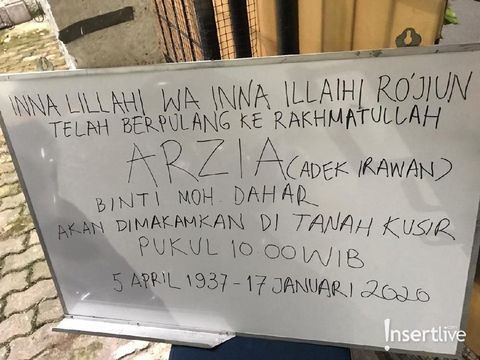 INNA LILLAHI WA INNA ILLAIHI RO'JIUN
TELAH BERPULANG KE RAKHMATULLAH
ARZIA (ADEK IRAWAN)
BINTI MOH. DAHAR
AKAN DIMAKAMKAN DI TANAH KUSIR
PUKUL 10 00 WIB
5 APRIL 1937 - 17 JANUARI 2020
Insertlive